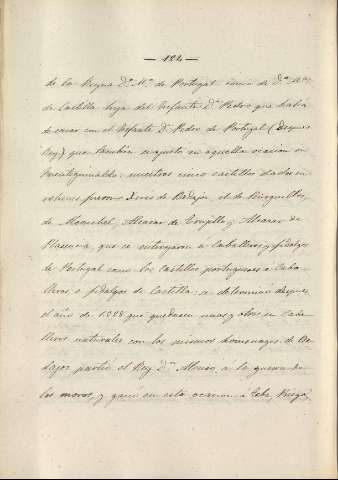 — 122 —
de la Reyna D.ª M.ª de Portugal como de D.ª M.ª
de Castilla hija del Infante D.n Pedro que habia
de casar con el Infante D.n Pedro de Portugal (despues
Rey) que tambien se ajustó en aquella ocasion en
Fuenteguinaldo: nuestros cinco castillos dados en
rehenes fueron Xeres de Badajoz, el de Burguillos,
de Alconchel, Alcazar de Trugillo y Alcazar de
Plasencia, que se entregaron a Caballeros y fidalgos
de Portugal como los Castillos portugueses a Caba-
lleros, e fidalgos de Castilla: se determinó despues
el año de 1328 que quedasen unos y otros en Caba-
lleros naturales con los mismos homenages. de Ba-
dajoz partió el Rey D.n Alonso a la guerra de
los moros, y ganó en esta ocasion a Teba, Priego,